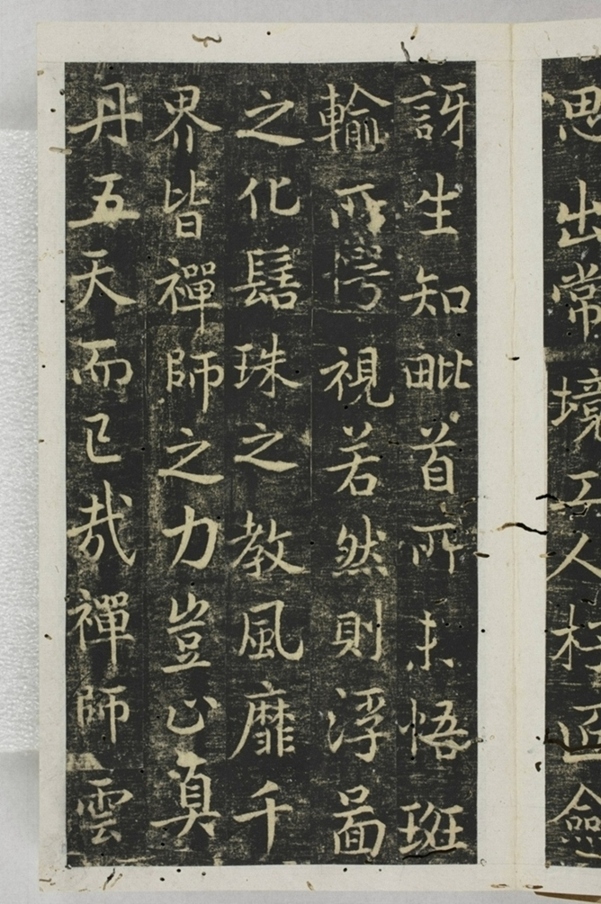 思出常境工人杜匠
訝生知毗首所未悟班
輸所愕視若然則浮啚
之化髻珠之教風靡千
界皆禪師之力豈止真
丹五天而已哉禪師雲